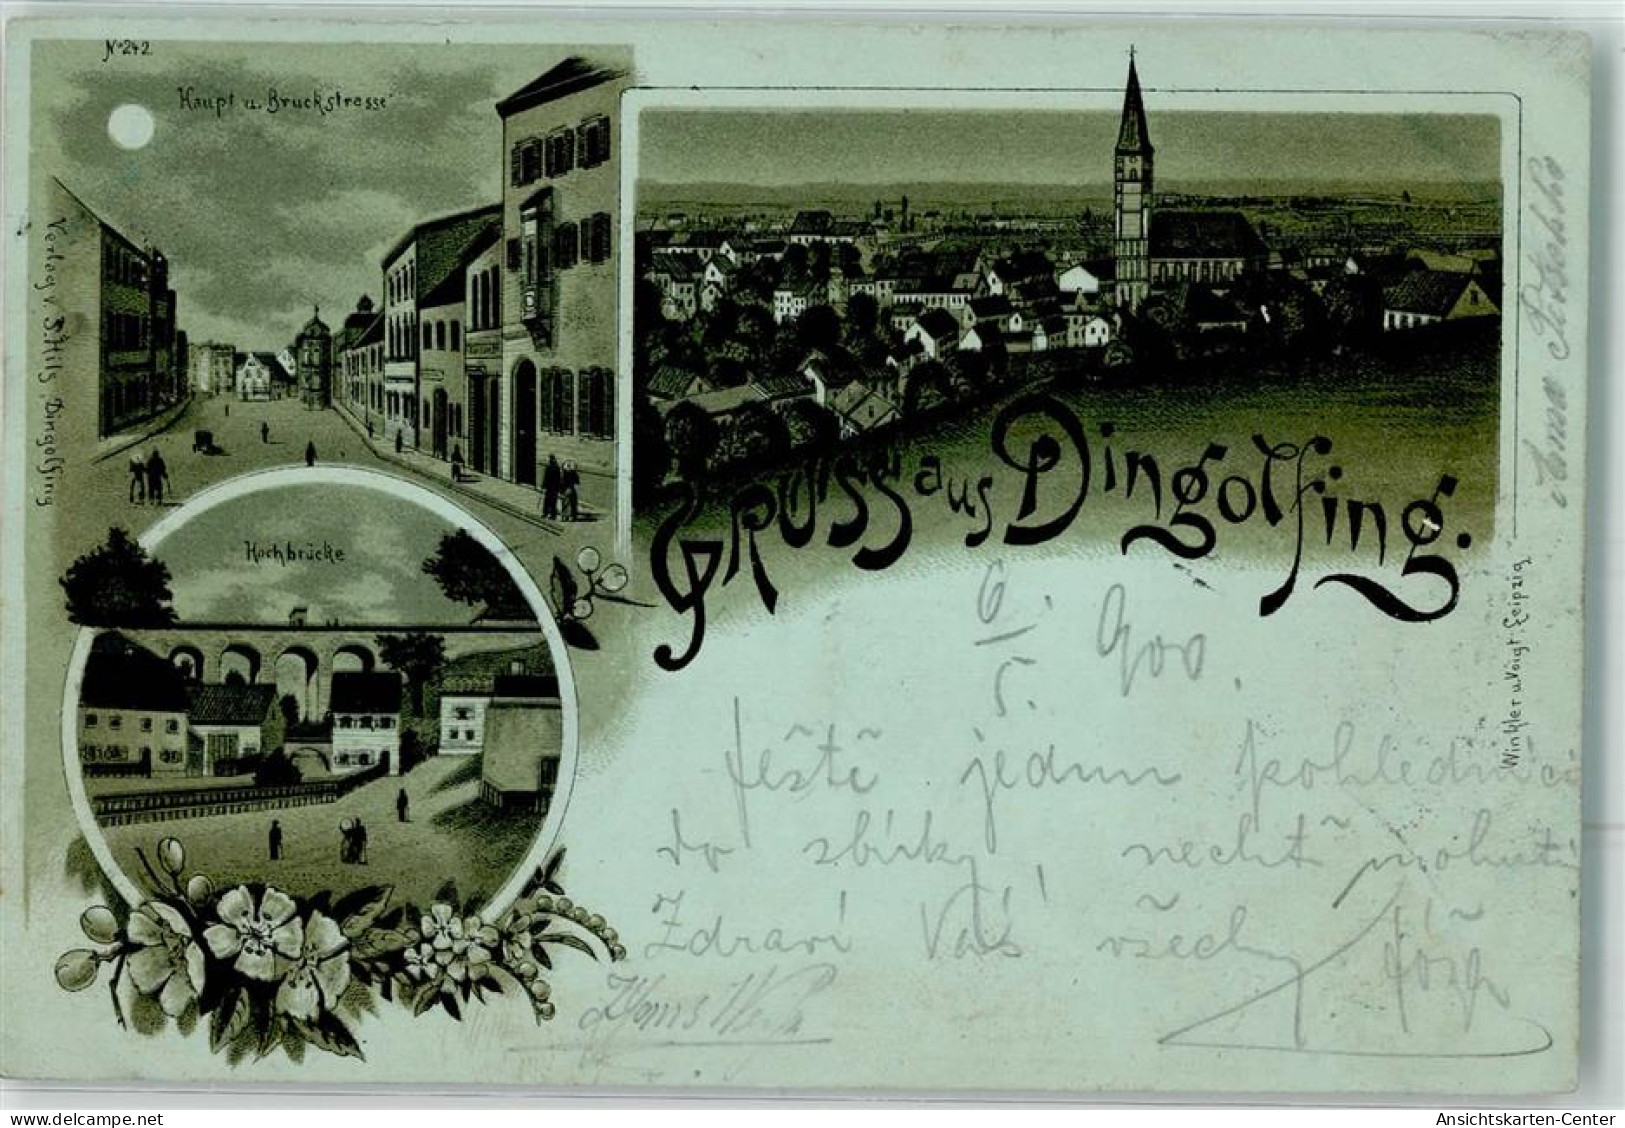 No 242
Haupt u. Bruckstrasse
Verlag v. Dingolfing
Hochbrücke
Gruss aus Dingolfing.
Winkler u. Voigt, Leipzig
6/5. 900.
Ještě jednu pohlednici
do sbírky, nechť
Zdraví Vás všechny
Hans
Ansichtskarten-Center